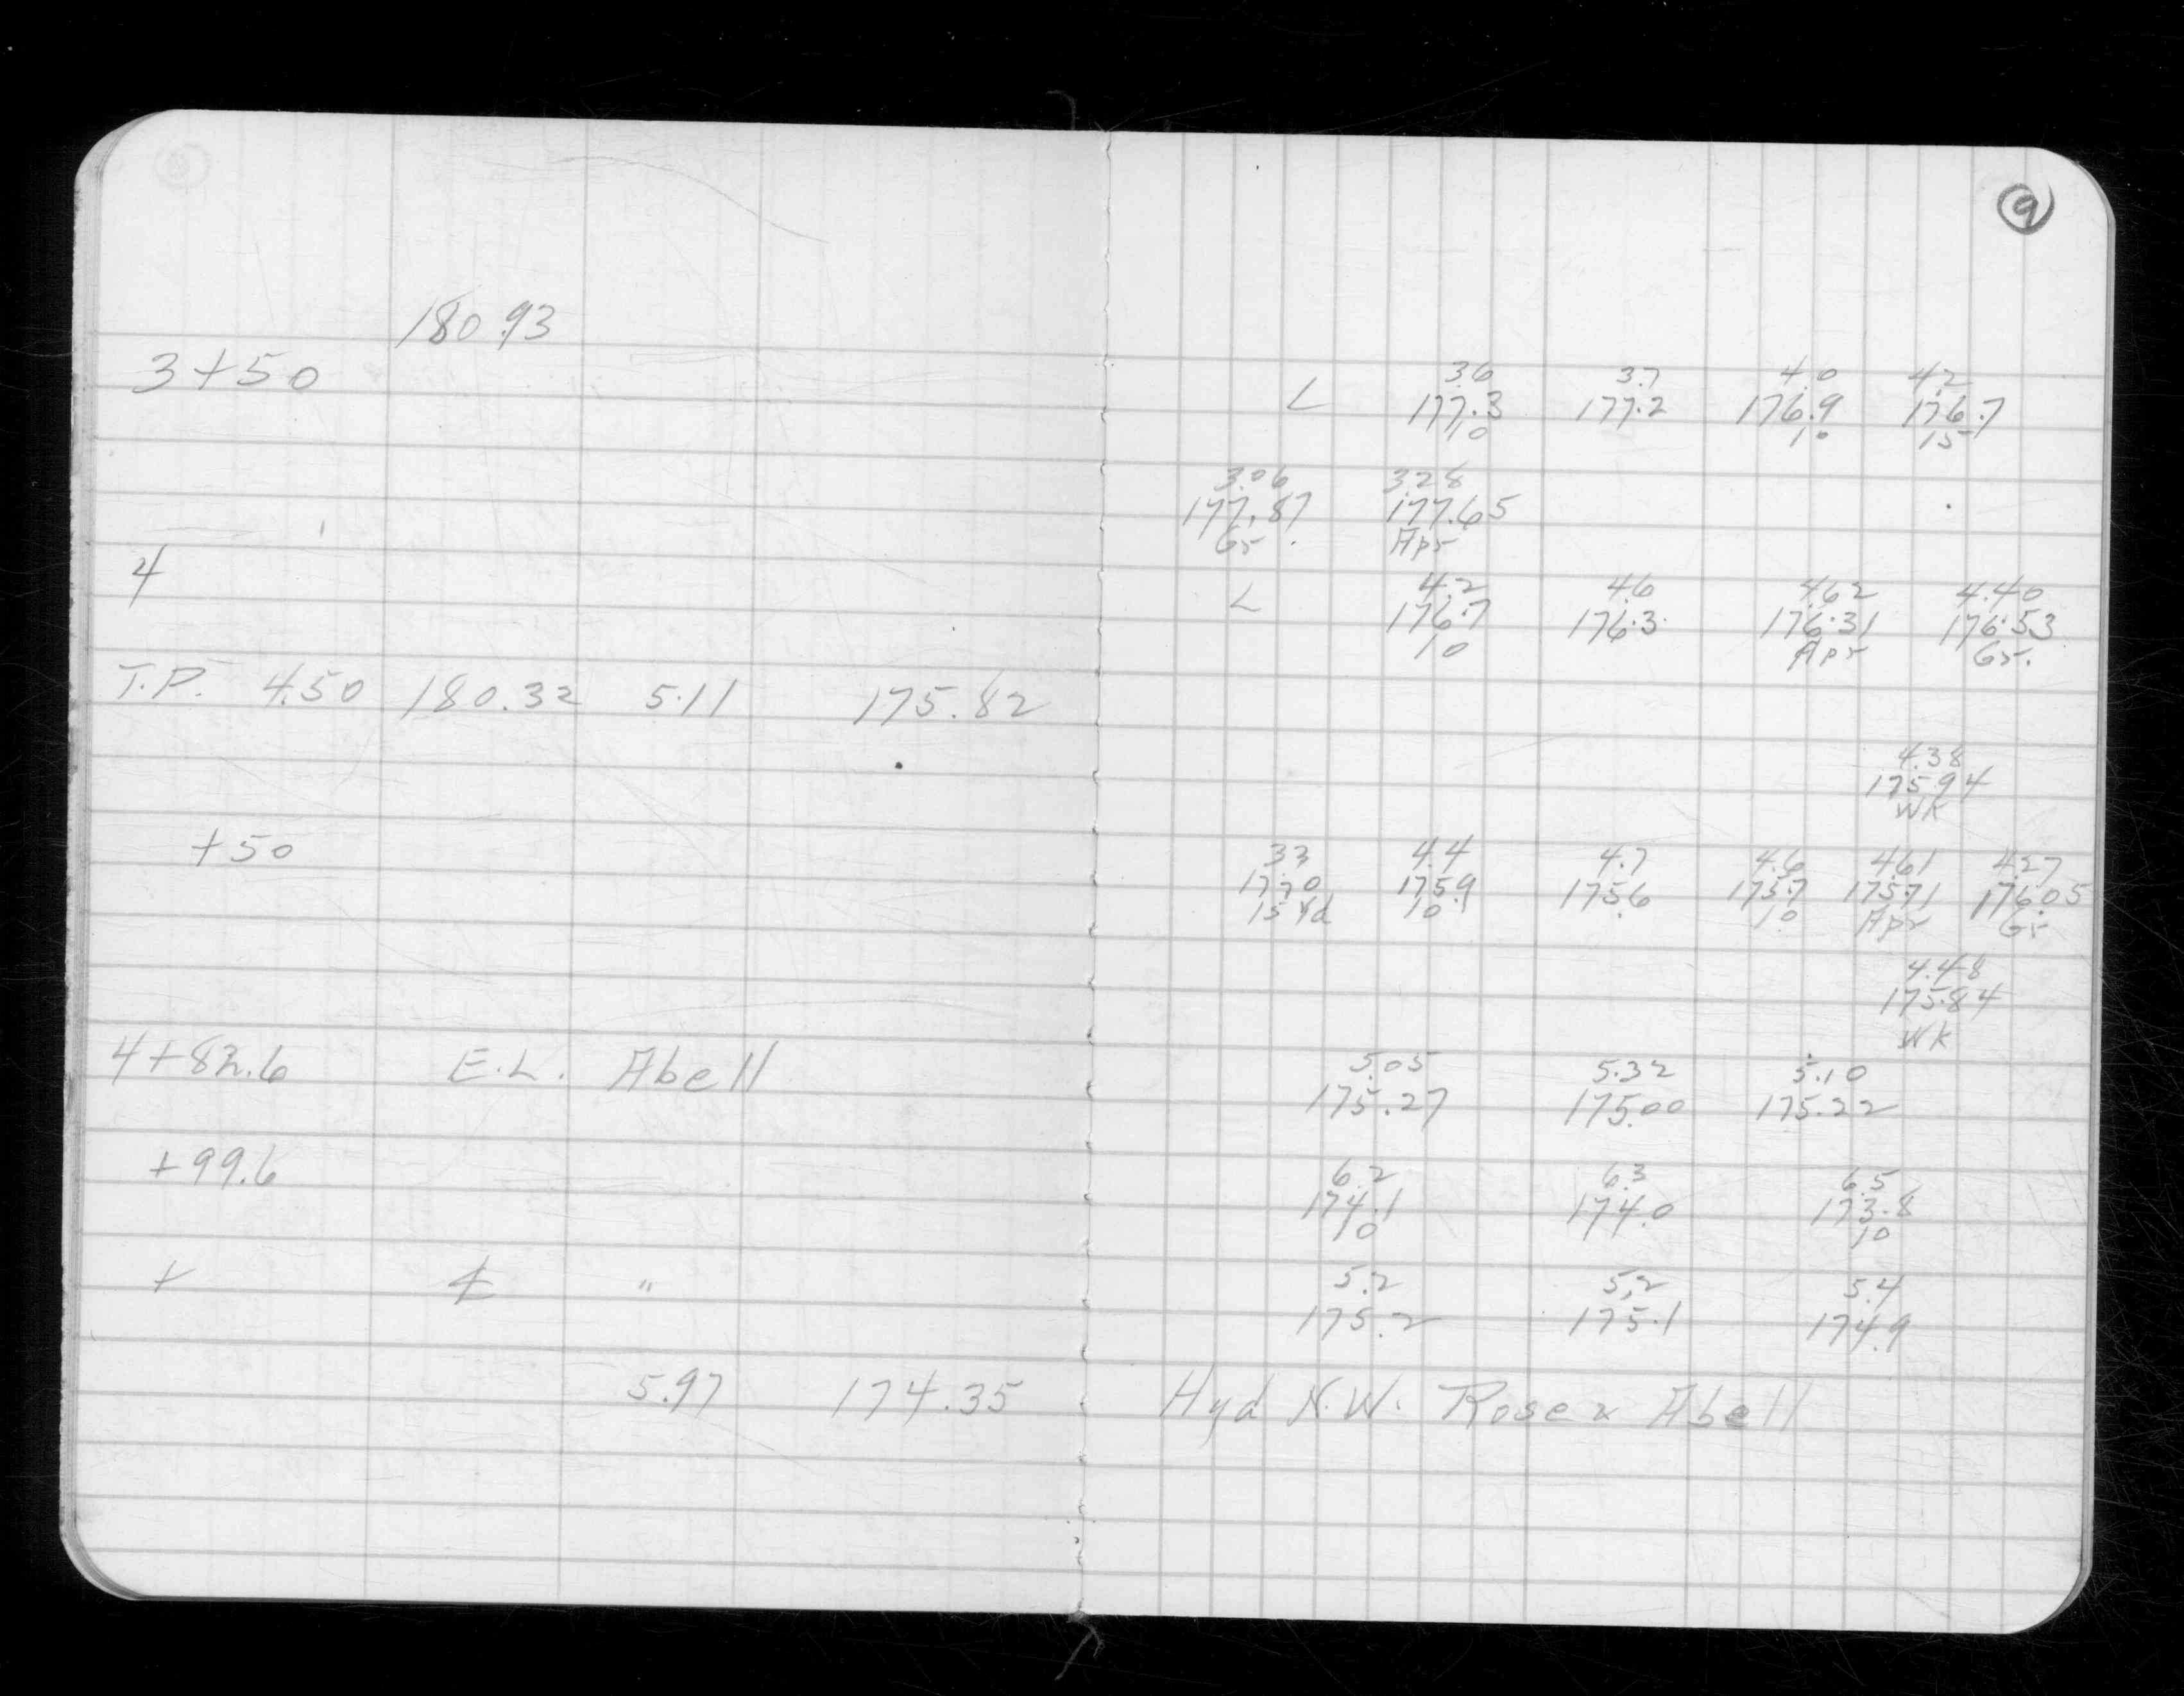 9
180.93
3+50
L 3.6 3.7 4.0 4.2
177.3 177.2 176.9 176.7
10 10 15
3.06 3.28
177.87 177.65
Gr. Apr
4
L 4.2 4.6 4.62 4.40
176.7 176.3 176.31 176.53
10 Apr Gr.
T.P. 4.50 180.32 5.11 175.82
4.38
175.94
WK
+50
3.3 4.4 4.7 4.6 4.61 4.27
177.0 175.9 175.6 175.7 175.71 176.05
15 Yd 10 10 Apr Gr
4.48
175.84
WK
E.L. Abell
5.05 5.32 5.10
175.27 175.00 175.22
+99.6
6.2 6.3 6.5
174.1 174.0 173.8
10 10
+ ⅊ "
5.2 5.2 5.4
175.2 175.1 174.9
5.97 174.35 Hyd N.W. Rose & Abell